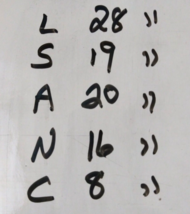 L 28 "
S 19 "
A 20 "
N 16 "
C 8 "